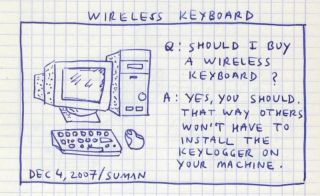 WIRELESS KEYBOARD
Q: SHOULD I BUY
A WIRELESS
KEYBOARD ?
A: YES, YOU SHOULD.
THAT WAY OTHERS
WON'T HAVE TO
INSTALL THE
KEYLOGGER ON
YOUR MACHINE.
DEC 4, 2007/SUMAN